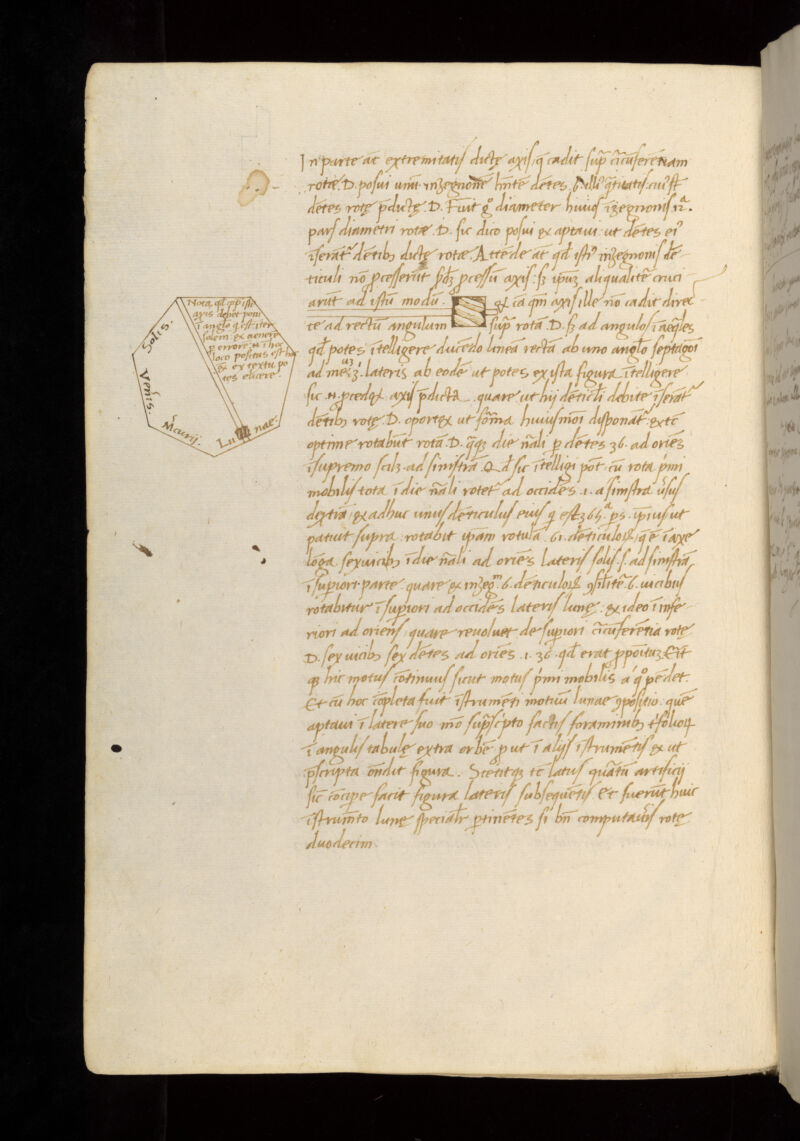 In parte at̄ extremitatis dictę axis q̄ cadit sup̄ circūferētiam
rotæ. D. posui unū inzegnonē hn̄tē dētes. 6.
dētes rotę p̄dictę. D. Fuit g° diameter huius īzegnonis
pars diametri rotæ. D. sic dico posui et aptaui ut dētes ei'
īserāt' dētib; dictę rotæ. Attēde at̄ qd̄ isti' inzegnonis dē
ticuli nō p̄cesserūt processū axis. s; ip̄m aliqualitē cruci
arūt ad istū modū. ca qm̄ axis ille nō cadit direc
te ad rectū angulum sup̄ rotā. D. s; ad angulos īæq̄les
qd̄ potes ītelligere ducēdo lineā rectā ab uno anglo septagoī
ad lateris ab eodē ut potes ex ista figura ītelligere
sic axis p̄dicta. quare ut hij dēticlī debite īserāt'
dētib; rotę. D. oportet ut forma huiusmoī disponāt'
optime rotabūt rotā. D. die nāli p̄ dētes 36. ad oriēs
īsupremo scil; ad sinistrā. Qd̄ sic ītelligi pōt. cū rota p̄mi
mobilis tota ī die nāli rotet' ad occidēs .i. a sinistra ūsus
dextrā et adhuc unus dēticulus eius q̄ est 365ᵃ ps. ip̄ius ut
patuit supra rotabit ip̄am rotulā. 61. dēticulorū q̄ ē ī axe
lōga sexuicib; ī die nāli ad oriēs lateris solis .s. ad sinistrā
ī sup̄iori parte. quare et īzegn̄. 6. dēticulorū 9silitē. 6. uicibus
rotabitur ī sup̄iori ad occidēs lateris lunę. et ideo ī infe
riori ad oriens. quare reuoluet de sup̄iori circūferētia rotę
D. sex uicib; sex dētes ad oriēs .i. 36. qd̄ erat p̄positū. Est
q; hic motus cōtinuus sicut motus p̄mi mobilis a q° pēdet.
Et cū hoc cōpleta fuit īstrumēti motuū lunae 9positio. quē
aptaui ī latere suo mō sup̄sc̄pto factis foraminib;
ī angulis tabulę extra orbē. p̄ ut ī alijs īstrumētis et ut
p̄scripta ōndit figura. tē latus quātū artificij
sic cōcipe facit figura lateris subsequētis. Et fuerūt huic
īstrumēto lunę specialr̄ p̄tinētes si bn̄ computaūis rotę
duodecim.
Nota qd̄ p̄p iste
axis debet poni
ī anglo q̄ est iter
solem et uenerē
p̄ errorē n̄ ī hoc
loco positus est hic
et ex textu po
tes elicere.
Solis.
Venis.
Mcurij.
Lunae.